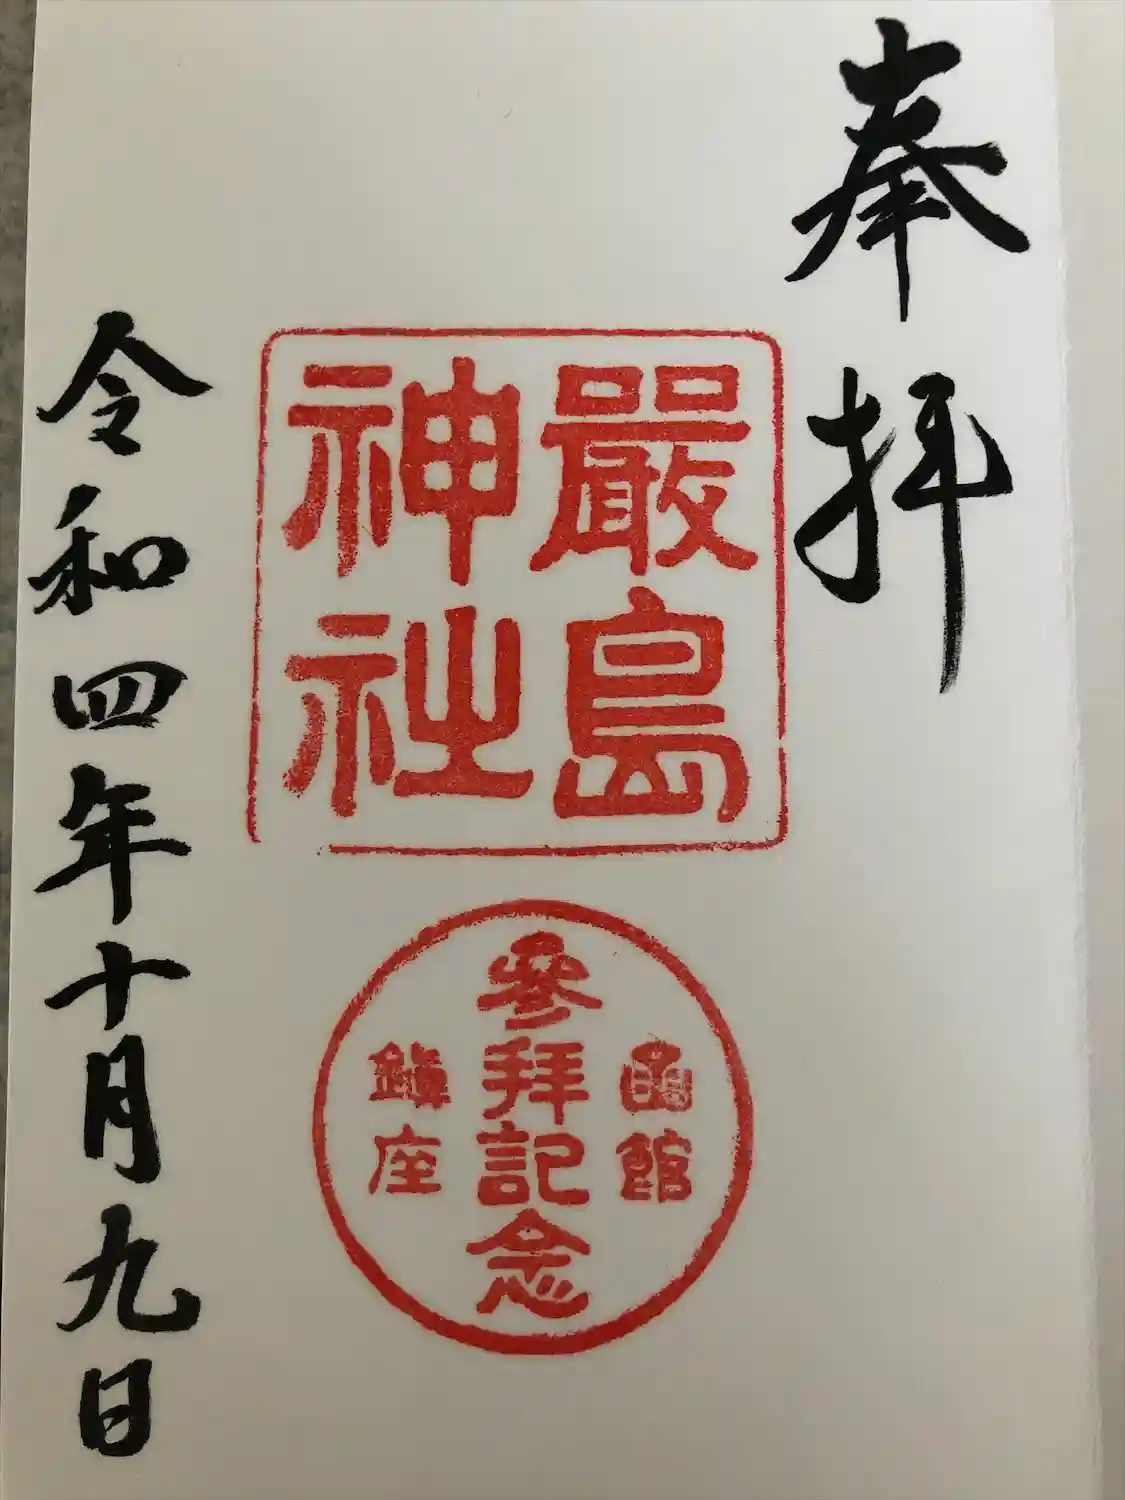 奉拝
嚴島
神社
函館
參拜記念
鎭座
令和四年十月九日